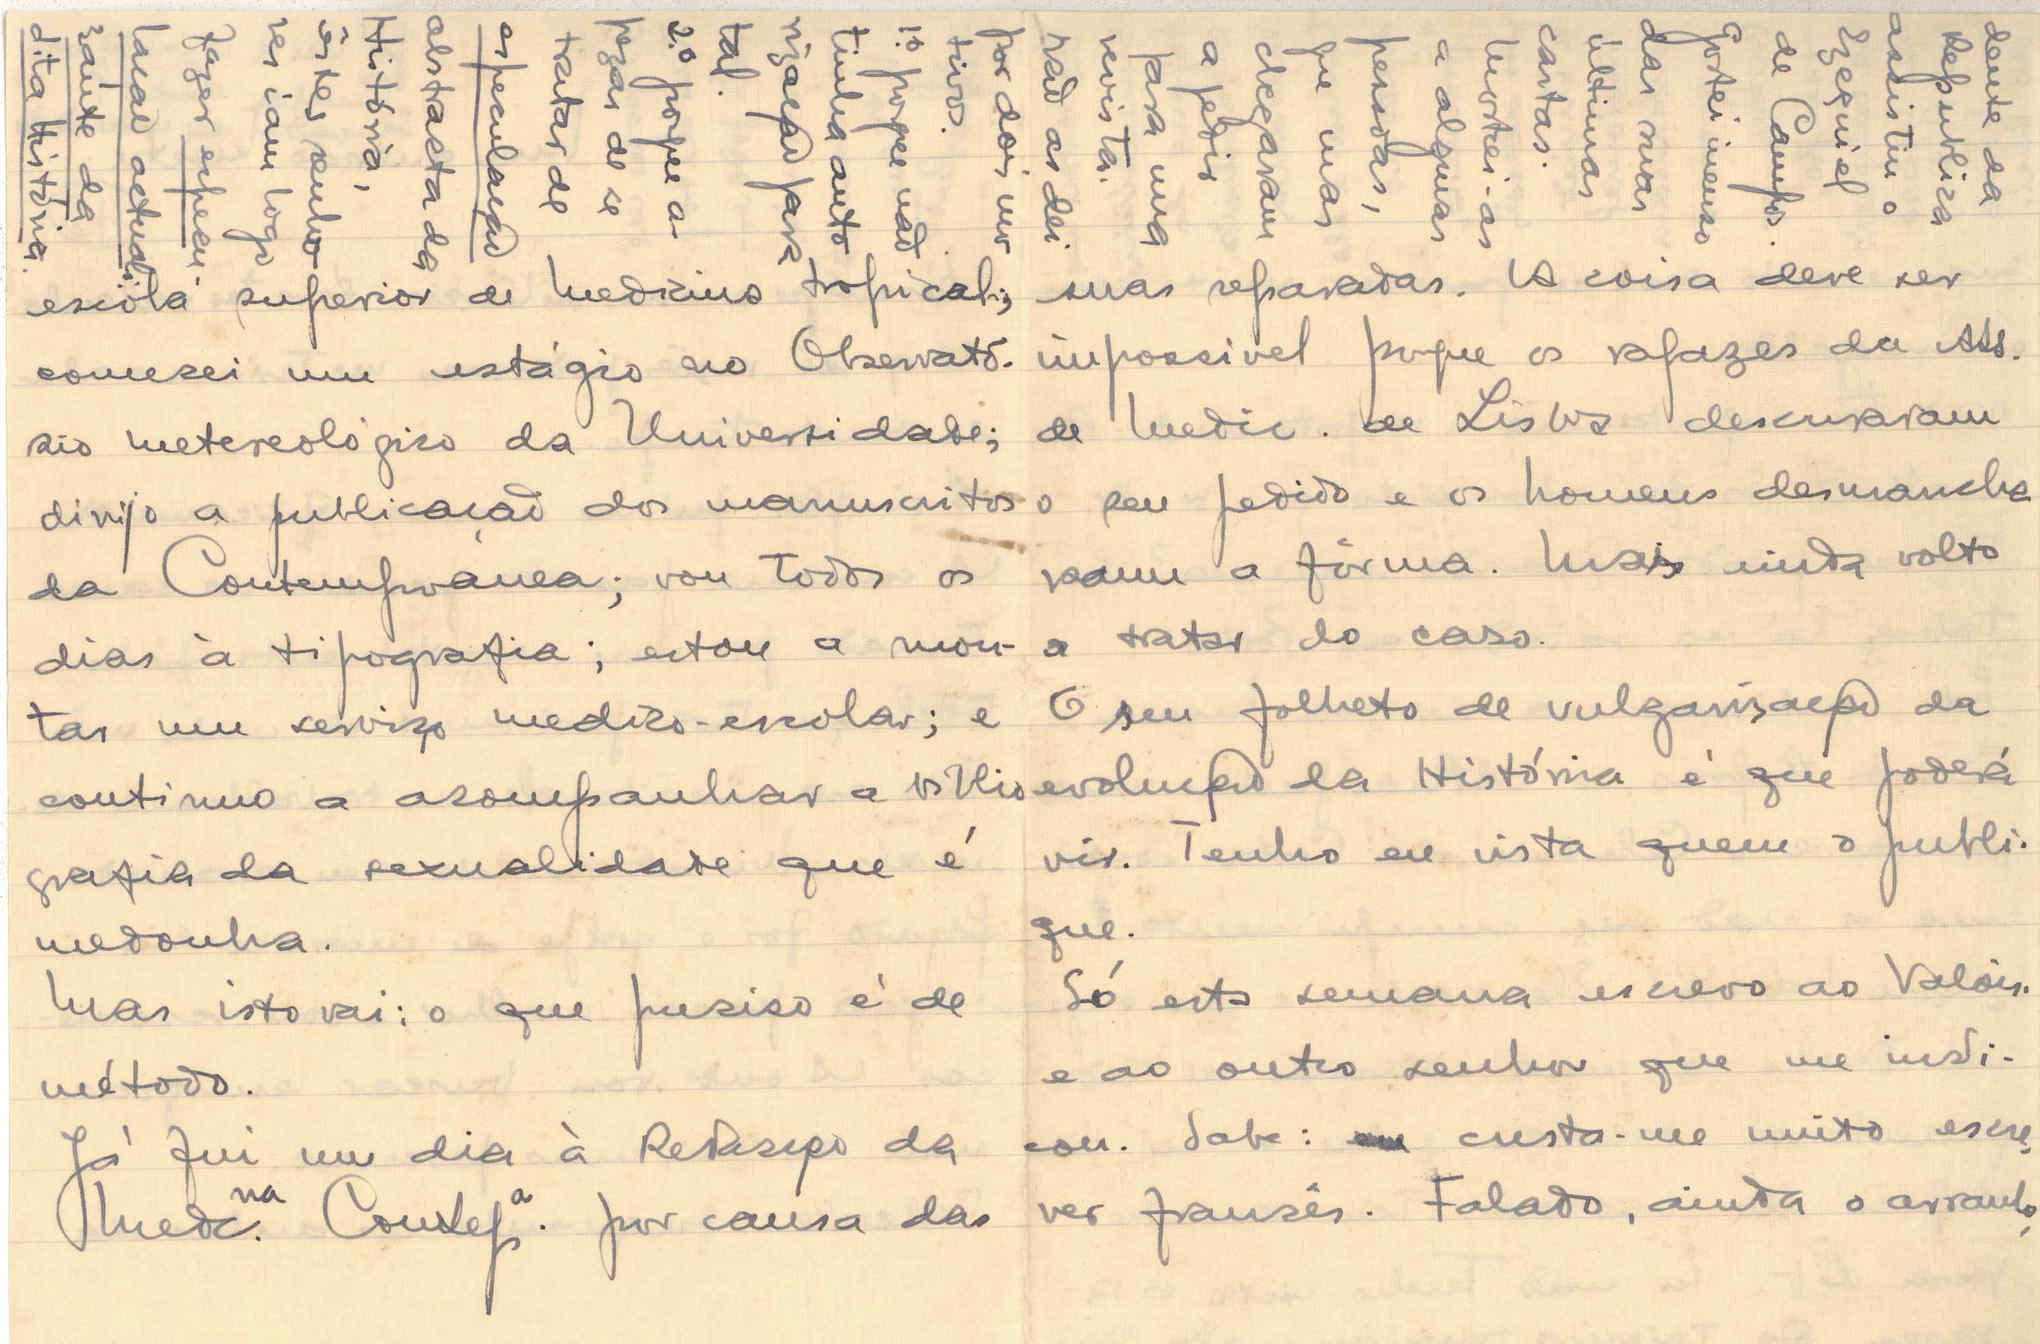 escóla superior de medicina tropical;
comecei um estágio no Observató-
rio metereológico da Universidade;
dirijo a publicação dos manuscritos
da Contemporânea; vou todos os
dias à tipografia; estou a mon-
tar um serviço medico-escolar; e
continuo a acompanhar a biblio
grafia da sexualidade que é
medonha.
Mas isto vai: o que preciso é de
método.
Já fui um dia à Redacção da
Medc.na Contep.a por causa das
suas separadas. A coisa deve ser
impossivel porque os rapazes da Ass.
de Medic. de Lisboa descuraram
o seu pedido e os homens desmancha
ram a fôrma. Mas ainda volto
a tratar do caso.
O seu folheto de vulgarização da
evolução da História é que poderá
vir. Tenho em vista quem o publi-
que.
Só esta semana escrevo ao Valois
e ao outro senhor que me indi-
cou. Sabe: custa-me muito escre
ver francês. Falado, ainda o arranho,
dente da
Republica
assistiu o
Ezequiel
de Campos.
Gostei imenso
das suas
últimas
cartas.
Mostrei-as
a algumas
pessoas,
que mas
chegaram
a pedir
para uma
revista.
Não as dei
por dois mo
tivos.
1.º porque não
tinha auto
rização para
tal.
2.º porque a-
pezar de se
tratar de
especulação
abstracta da
História,
êstes senho
res iam logo
fazer especu-
lação actuali-
zante da
dita História.